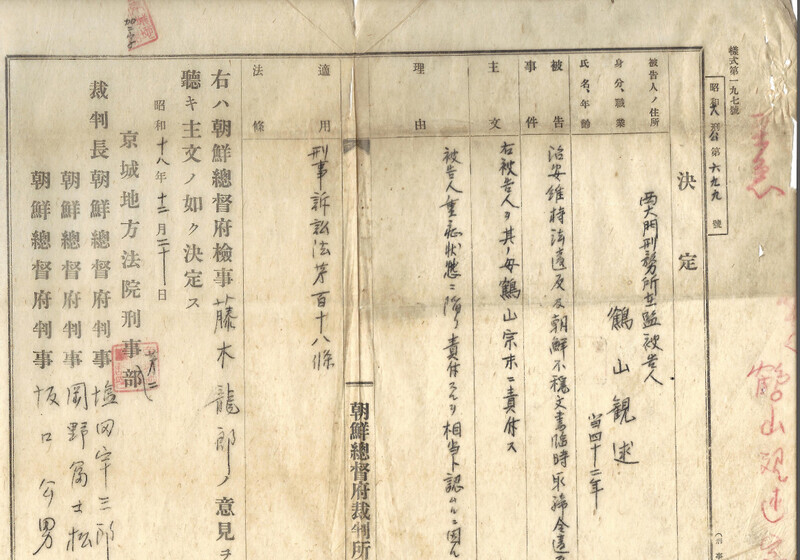 樣式第一九七號
昭和 刑公第六九九號
至急
鶴山
決定
被告人ノ住所
身分、職業
氏名、年齡
西大門刑務所在監被告人
鶴山觀述
當四十二年
被告事件
治安維持法違反及朝鮮不穩文書臨時取締令違
主文
右被告人ヲ其ノ母鶴山宗 ニ責付ス
理由
被告人重症狀態ニ陷リ責付スルヲ相當ト認ムルニ因ル
適用法條
刑事訴訟法第百十八條
右ハ朝鮮總督府檢事藤木龍郎ノ意見ヲ
聽キ主文ノ如ク決定ス
昭和十八年十二月二十日
京城地方法院刑事第二部
裁判長朝鮮總督府判事塩田宇三郎
朝鮮總督府判事岡野富士松
朝鮮總督府判事坂口公男
朝鮮總督府裁判所